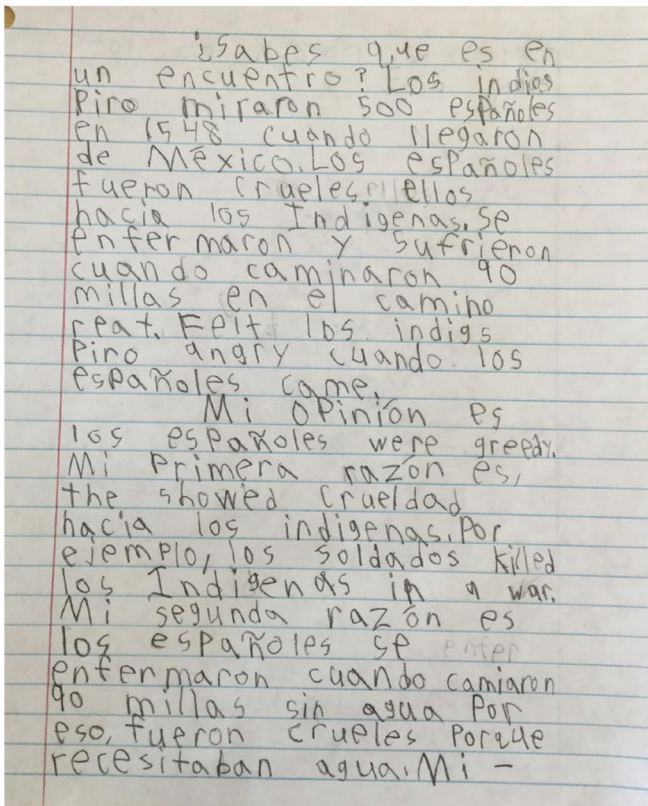 ¿Sabes que es en
un encuentro? Los indios
Piro miraron 500 españoles
en 1548 cuando llegaron
de México. Los españoles
fueron crueles ellos
hacia los Indigenas. Se
enfermaron y sufrieron
cuando caminaron 90
millas en el camino
reat. Felt los indigs
Piro angry cuando los
españoles came.
Mi opinión es
los españoles were greedy.
Mi primera razón es,
the showed crueldad
hacia los indigenas. Por
ejemplo, los soldados killed
los Indigenas in a war.
Mi segunda razón es
los españoles se enter
enfermaron cuando camiaron
90 millas sin agua Por
eso, fueron crueles porque
recesitaban agua. Mi -